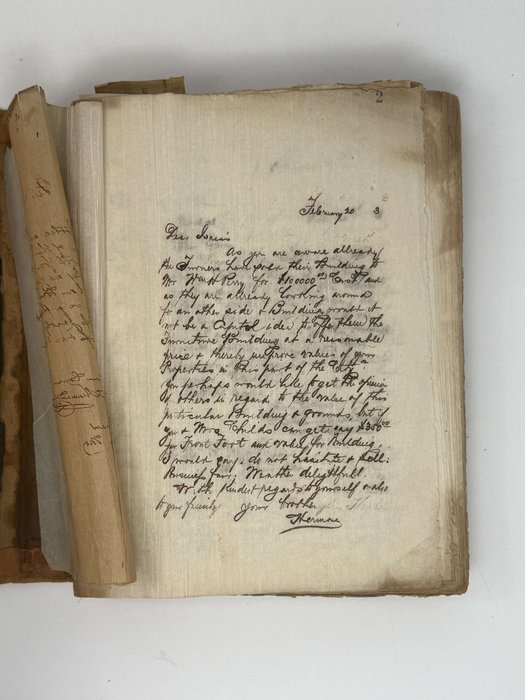 2
February 20 3
Dear Isaias
As you are aware allready
the Turners have sold their Building to
Mr Wm H Perry for $100000 00 Cash and
as they are allready looking around
for an other side & Building, would it
not be a Capital idea to offer them the
Building at a reasonable
price & thereby improve values of your
Properties in this part of the City
You perhaps would like to get the opinion
of others in regard to the value of this
particular Building & grounds, but if
you & Mrs Childs can get say $350 00
per Front Foot and value for Building
I would say. do not hesitate & sell.
Business fair. Weather delightfull.
With kindest regards to yourself & also
to your family your brother
Herman